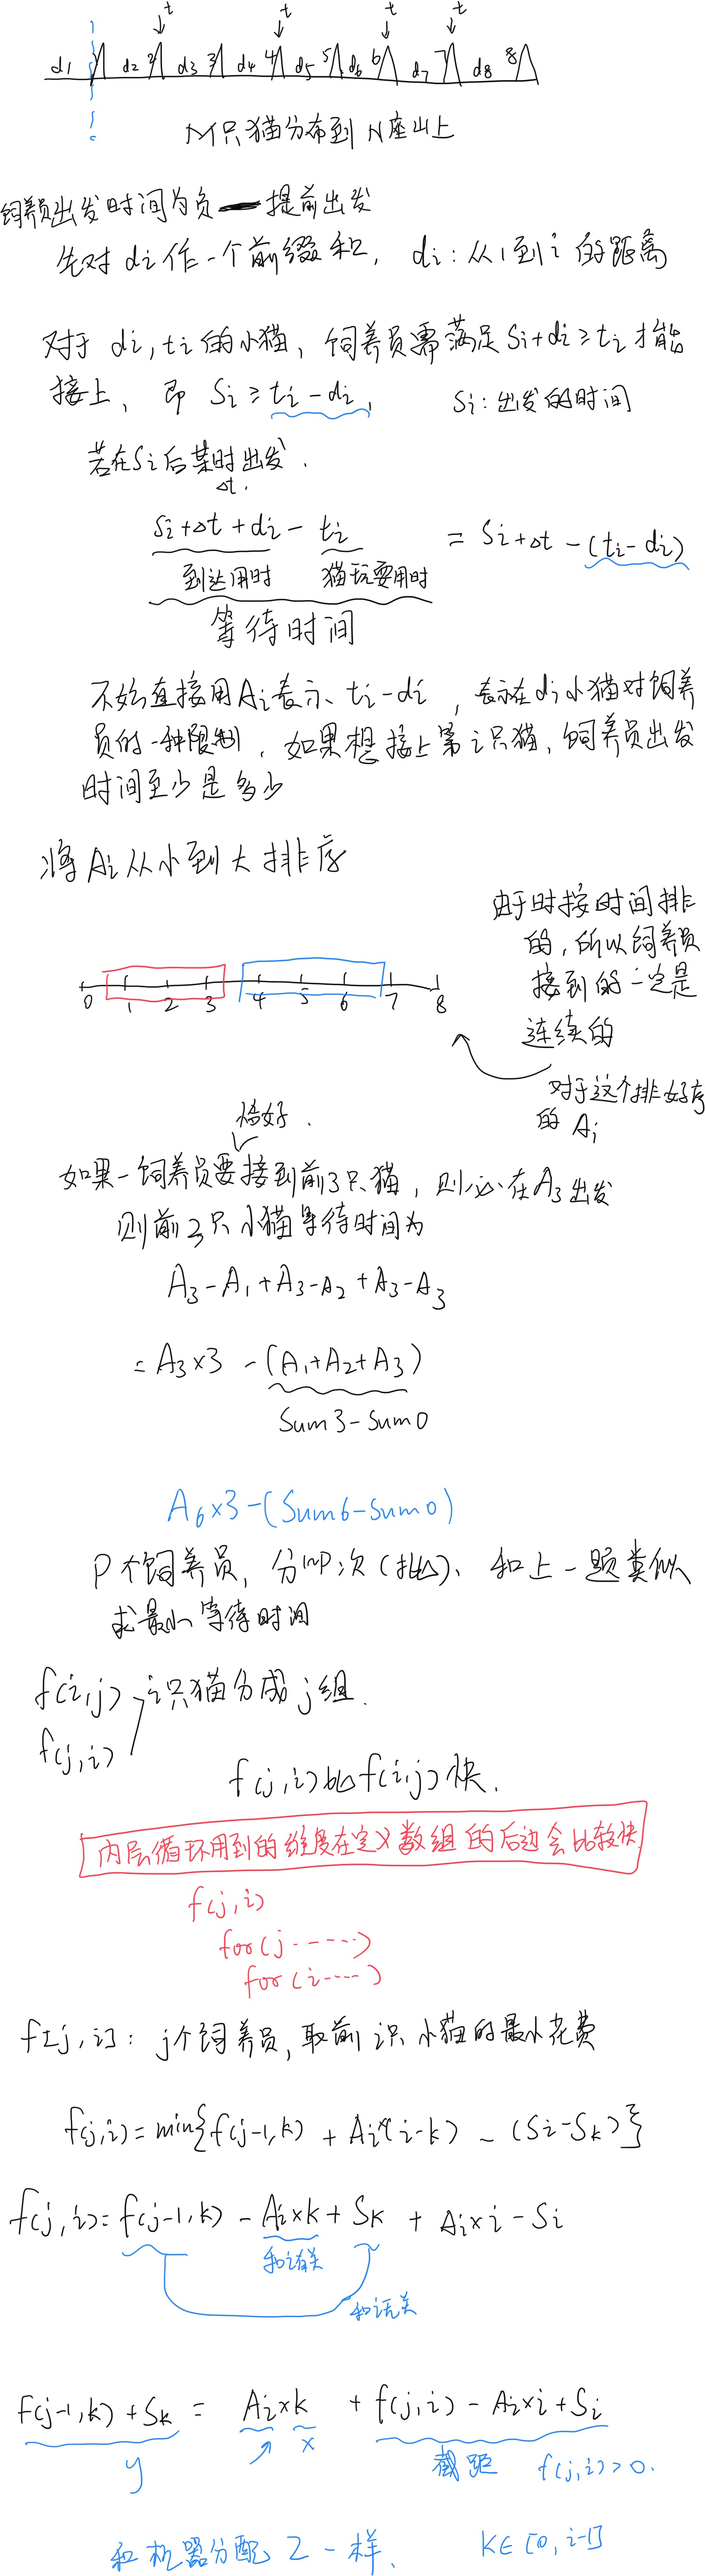 t t t t
d1 d2 2 d3 3 d4 4 d5 5 d6 6 d7 7 d8 8
M只猫分布到 N座山上
饲养员出发时间为负 — 提前出发
先对 di 作一个前缀和, di: 从1到i 的距离
对于 di, ti 的小猫, 饲养员需满足 Si+di≥ti 才能
接上, 即 Si≥ti-di, Si: 出发的时间
若在Si后某时出发.
Δt.
Si+Δt+di - ti = Si+Δt -(ti-di)
到达用时 猫玩耍用时
等待时间
不妨直接用Ai表示 ti-di, 表示在di小猫对饲养
员的一种限制, 如果想接上第i只猫, 饲养员出发
时间至少是多少
将 Ai 从小到大排序
由于时按时间排
的, 所以饲养员
接到的一定是
连续的
0 1 2 3 4 5 6 7 8
对于这个排好序
的 Ai
恰好.
如果一饲养员要接到前3只猫, 则必在A3出发
则前3只小猫等待时间为
A3-A1+A3-A2+A3-A3
= A3×3 -(A1+A2+A3)
Sum3-Sum0
A6×3-(Sum6-Sum0)
P个饲养员, 分P次(批)、和上一题类似
求最小等待时间
f(i,j) i只猫分成j组.
f(j,i)
f(j,i)比f(i,j)快.
内层循环用到的维度在定义数组的后边会比较快
f(j,i)
for(j------)
for(i----)
f[j,i]: j个饲养员, 取前i只小猫的最小花费
f(j,i)=min{f(j-1,k) + Ai*(i-k) - (Si-Sk)}
f(j,i)=f(j-1,k) - Ai×k + Sk + Ai×i - Si
和i有关
和i无关
f(j-1,k)+Sk = Ai×k + f(j,i) - Ai×i+Si
y x 截距 f(j,i)>0.
和机器分配2一样. K∈[0,i-1]